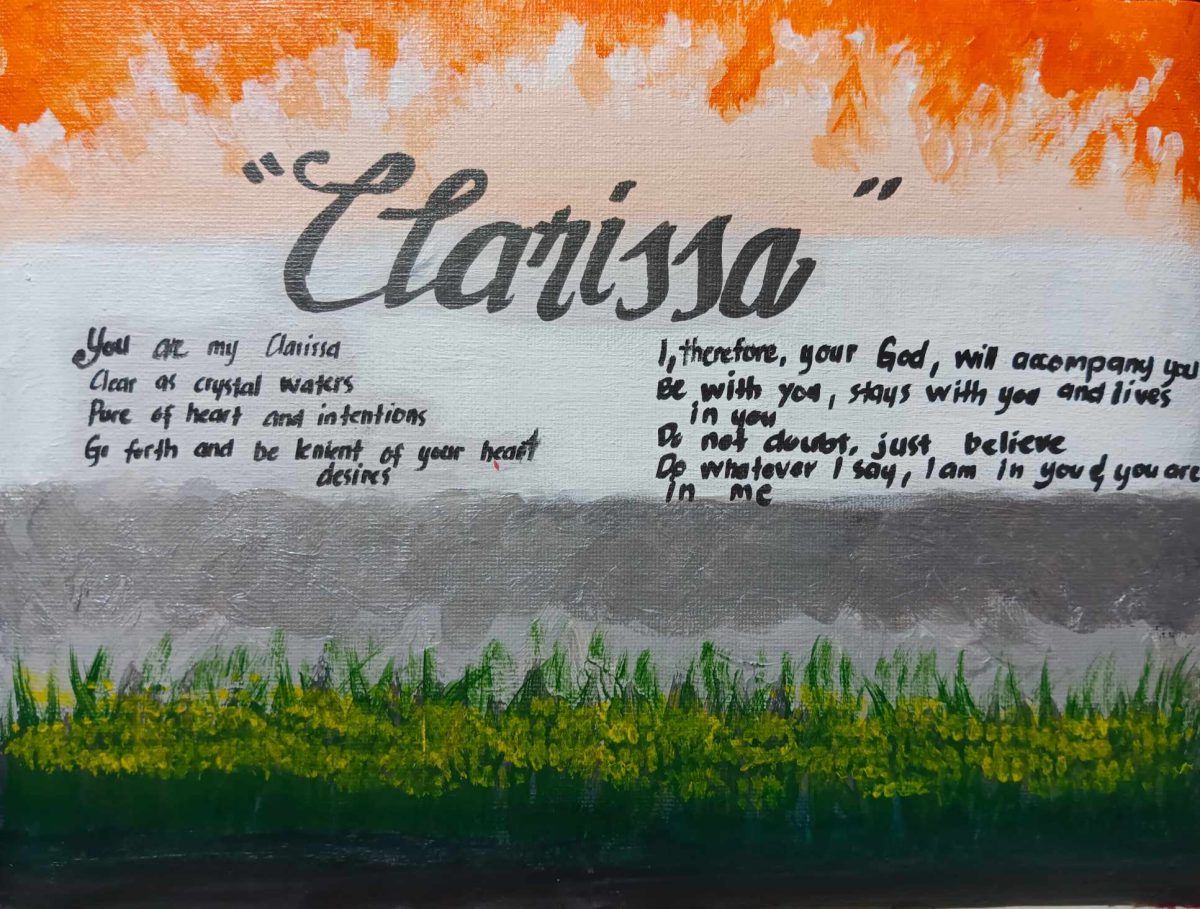 "Clarissa"
You are my Clarissa
Clear as crystal waters
Pure of heart and intentions
Go forth and be lenient of your heart
desires
I, therefore, your God, will accompany you
Be with you, stays with you and lives
in you
Do not doubt, just believe
Do whatever I say, I am in you & you are
in me